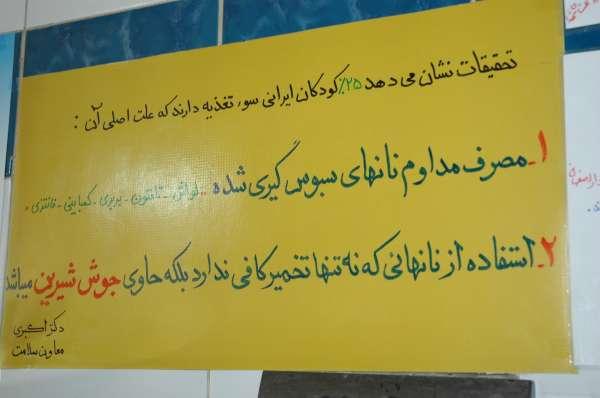 تحقیقات نشان می دهد ۲۵٪ کودکان ایرانی سوء تغذیه دارند که علت اصلی آن :
۱_ مصرف مداوم نانهای سبوس گیری شده _ لواش _ تافتون _ بربری _ کمباینی _ فانتزی .
۲_ استفاده از نانهائی که نه تنها تخمیر کافی ندارد بلکه حاوی جوش شیرین میباشد
دکتر اکبری
معاون سلامت